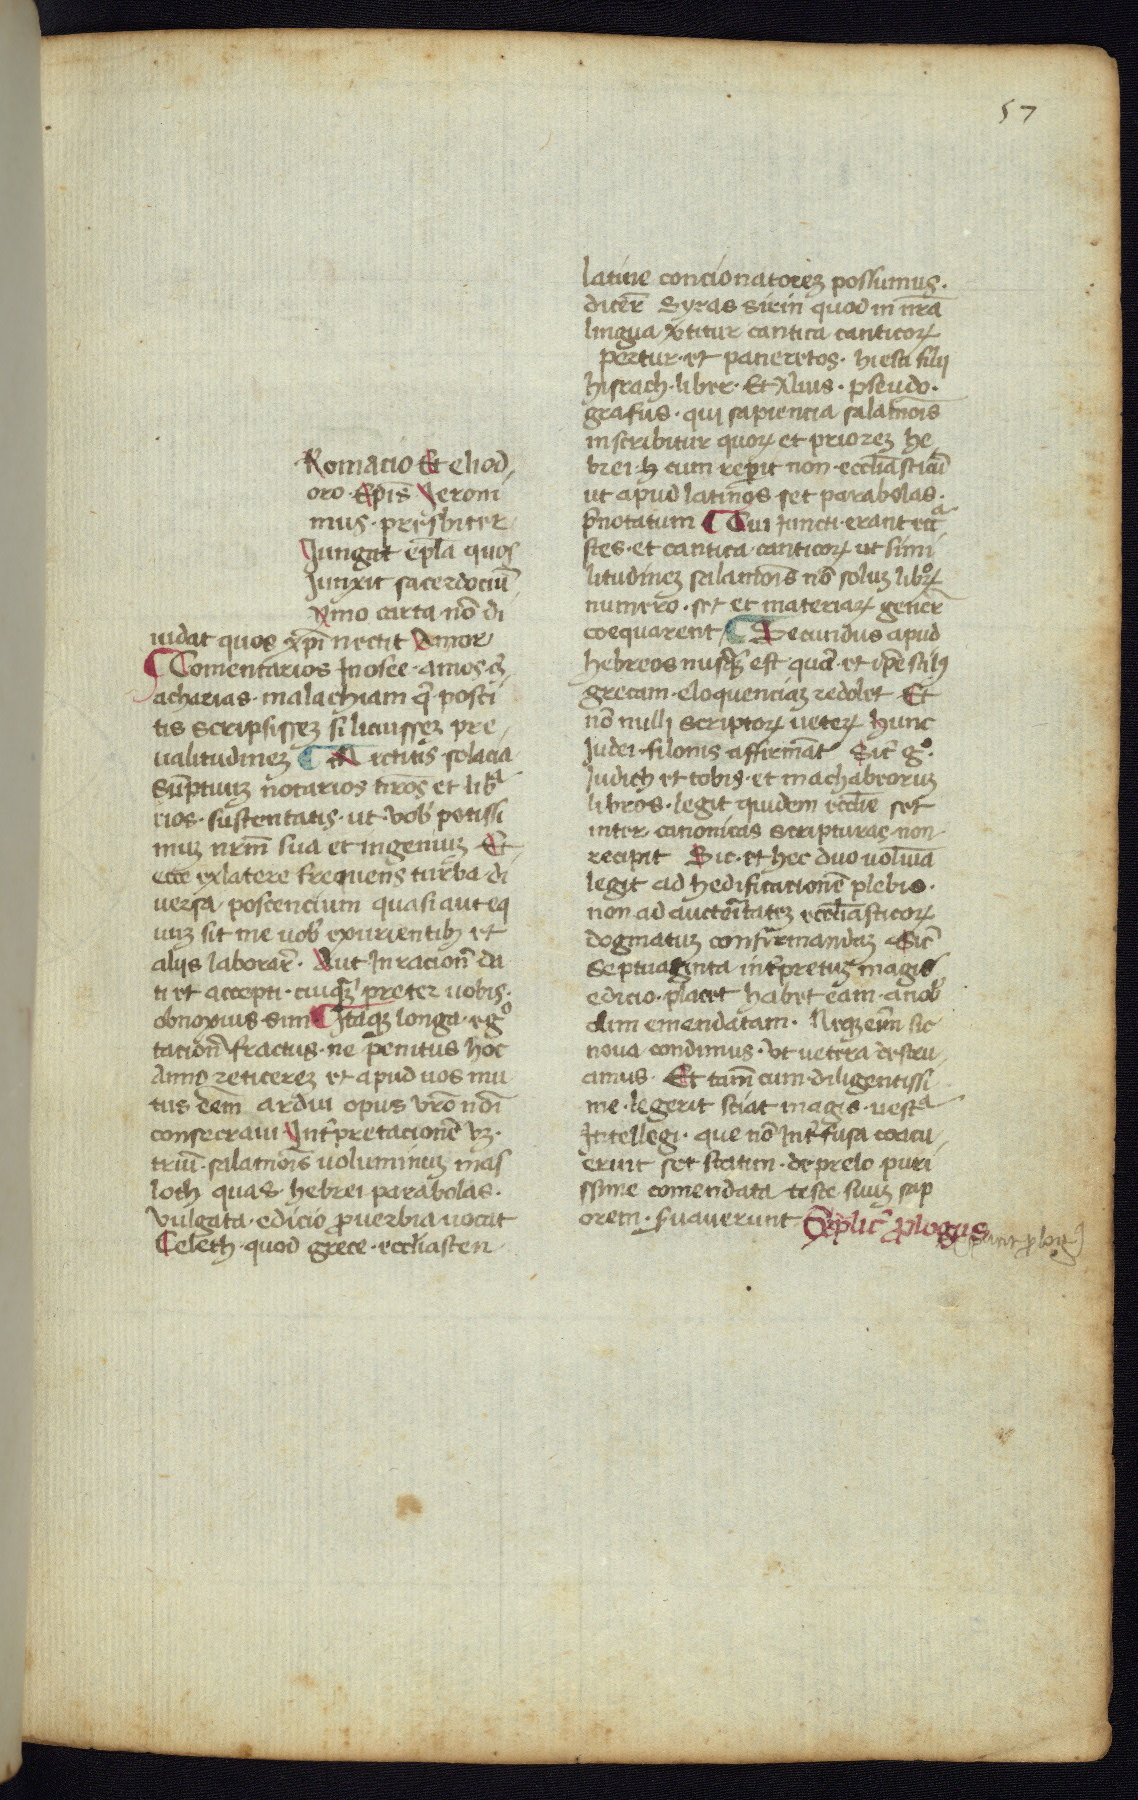 57
Romacio Et eliod
oro Ep̄is Ieroni
mus presbiter
Iungat ep̄la quos
Iunxit sacerdociū
Ymo carta nō di
uidat quos xp̄i nectit Amor
Comentarios In osee amos ⁊ ȝ
acharias malachiam q̄ posci
tis scripsissem si licuissem pre
ualitudinem Mictitis solacia
Sūptuum notarios nr̄os et libᵃ
rios sustentatis ut vob̄ potissi
mum nr̄m sua et ingenium Et
ecce exlatere frequens turba di
uersa poscencium quasi aut eq
uum sit me uob̄ exurientibꝫ et
alijs laborar̄ Aut In racion̄ da
ti et accepti cuiqꝫ preter uobis
obnoxius sim Itaqꝫ longa egᵒ
tacion̄ fractus ne penitus hoc
Anno reticerem et apud uos mu
tus dem̄ ardui opus vr̄o nōi
consecraui Int̄pretacionē vꝫ
triū salamōis uoluminum mas
loth quas hebrei parabolas
vulgata edicio ꝓuerbia uocat
Celeth quod grece ecclīasten
latine concionatorem possumus
dicer̄ Syras sirin quod in nr̄a
lingua v̄titur cantica canticoꝝ
Fertur et paneretos hiesu filij
hisrach liber Et Alius pseudo
grafus qui sapiencia salamōis
inscribitur quoꝝ et priorem he
breih cum reperit non ecclīasticū
ut apud latinos set parabolas
p̄notatum Cui Iuncti erant eccᵃ
stes et cantica canticoꝝ ut simi
litudinem salamōis nō solum libᵒꝝ
numero set et materiaꝝ gener̄
coequarent Secundus apud
hebreos nusqꝫ est quā et ip̄e stilꝰ
grecam eloquenciam redolet Et
nō nulli scriptoꝝ ueteꝝ hunc
Iudei filonis affirmāt Sic̄ gᵒ
Iudich et tobis et machabeorum
libros legit quidem ecclīe set
inter canonicas scripturas non
recipit Sic et hec duo uolūia
legit ad hedificacionē plebis
non ad auctoritatem ecclīasticoꝝ
dogmatum confirmandam Sic̄
septuaginta int̄pretum magis
edicio placet habet eam anob̄
olim emendatam Neqꝫ eīm sic
noua condimus vt uetera destru
amus Et tam̄ cum diligentissi
me legerit sciat magis nostᵃ
Intellegi que nō Int̄ fusa coacu
erunt set statim deprelo puri
ssime comendata teste suum sap
orem suauerunt Explic̄ ꝓlogus